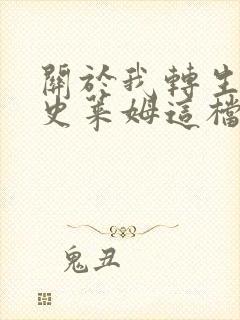 關於我轉生
史萊姆這檔
鬼丑